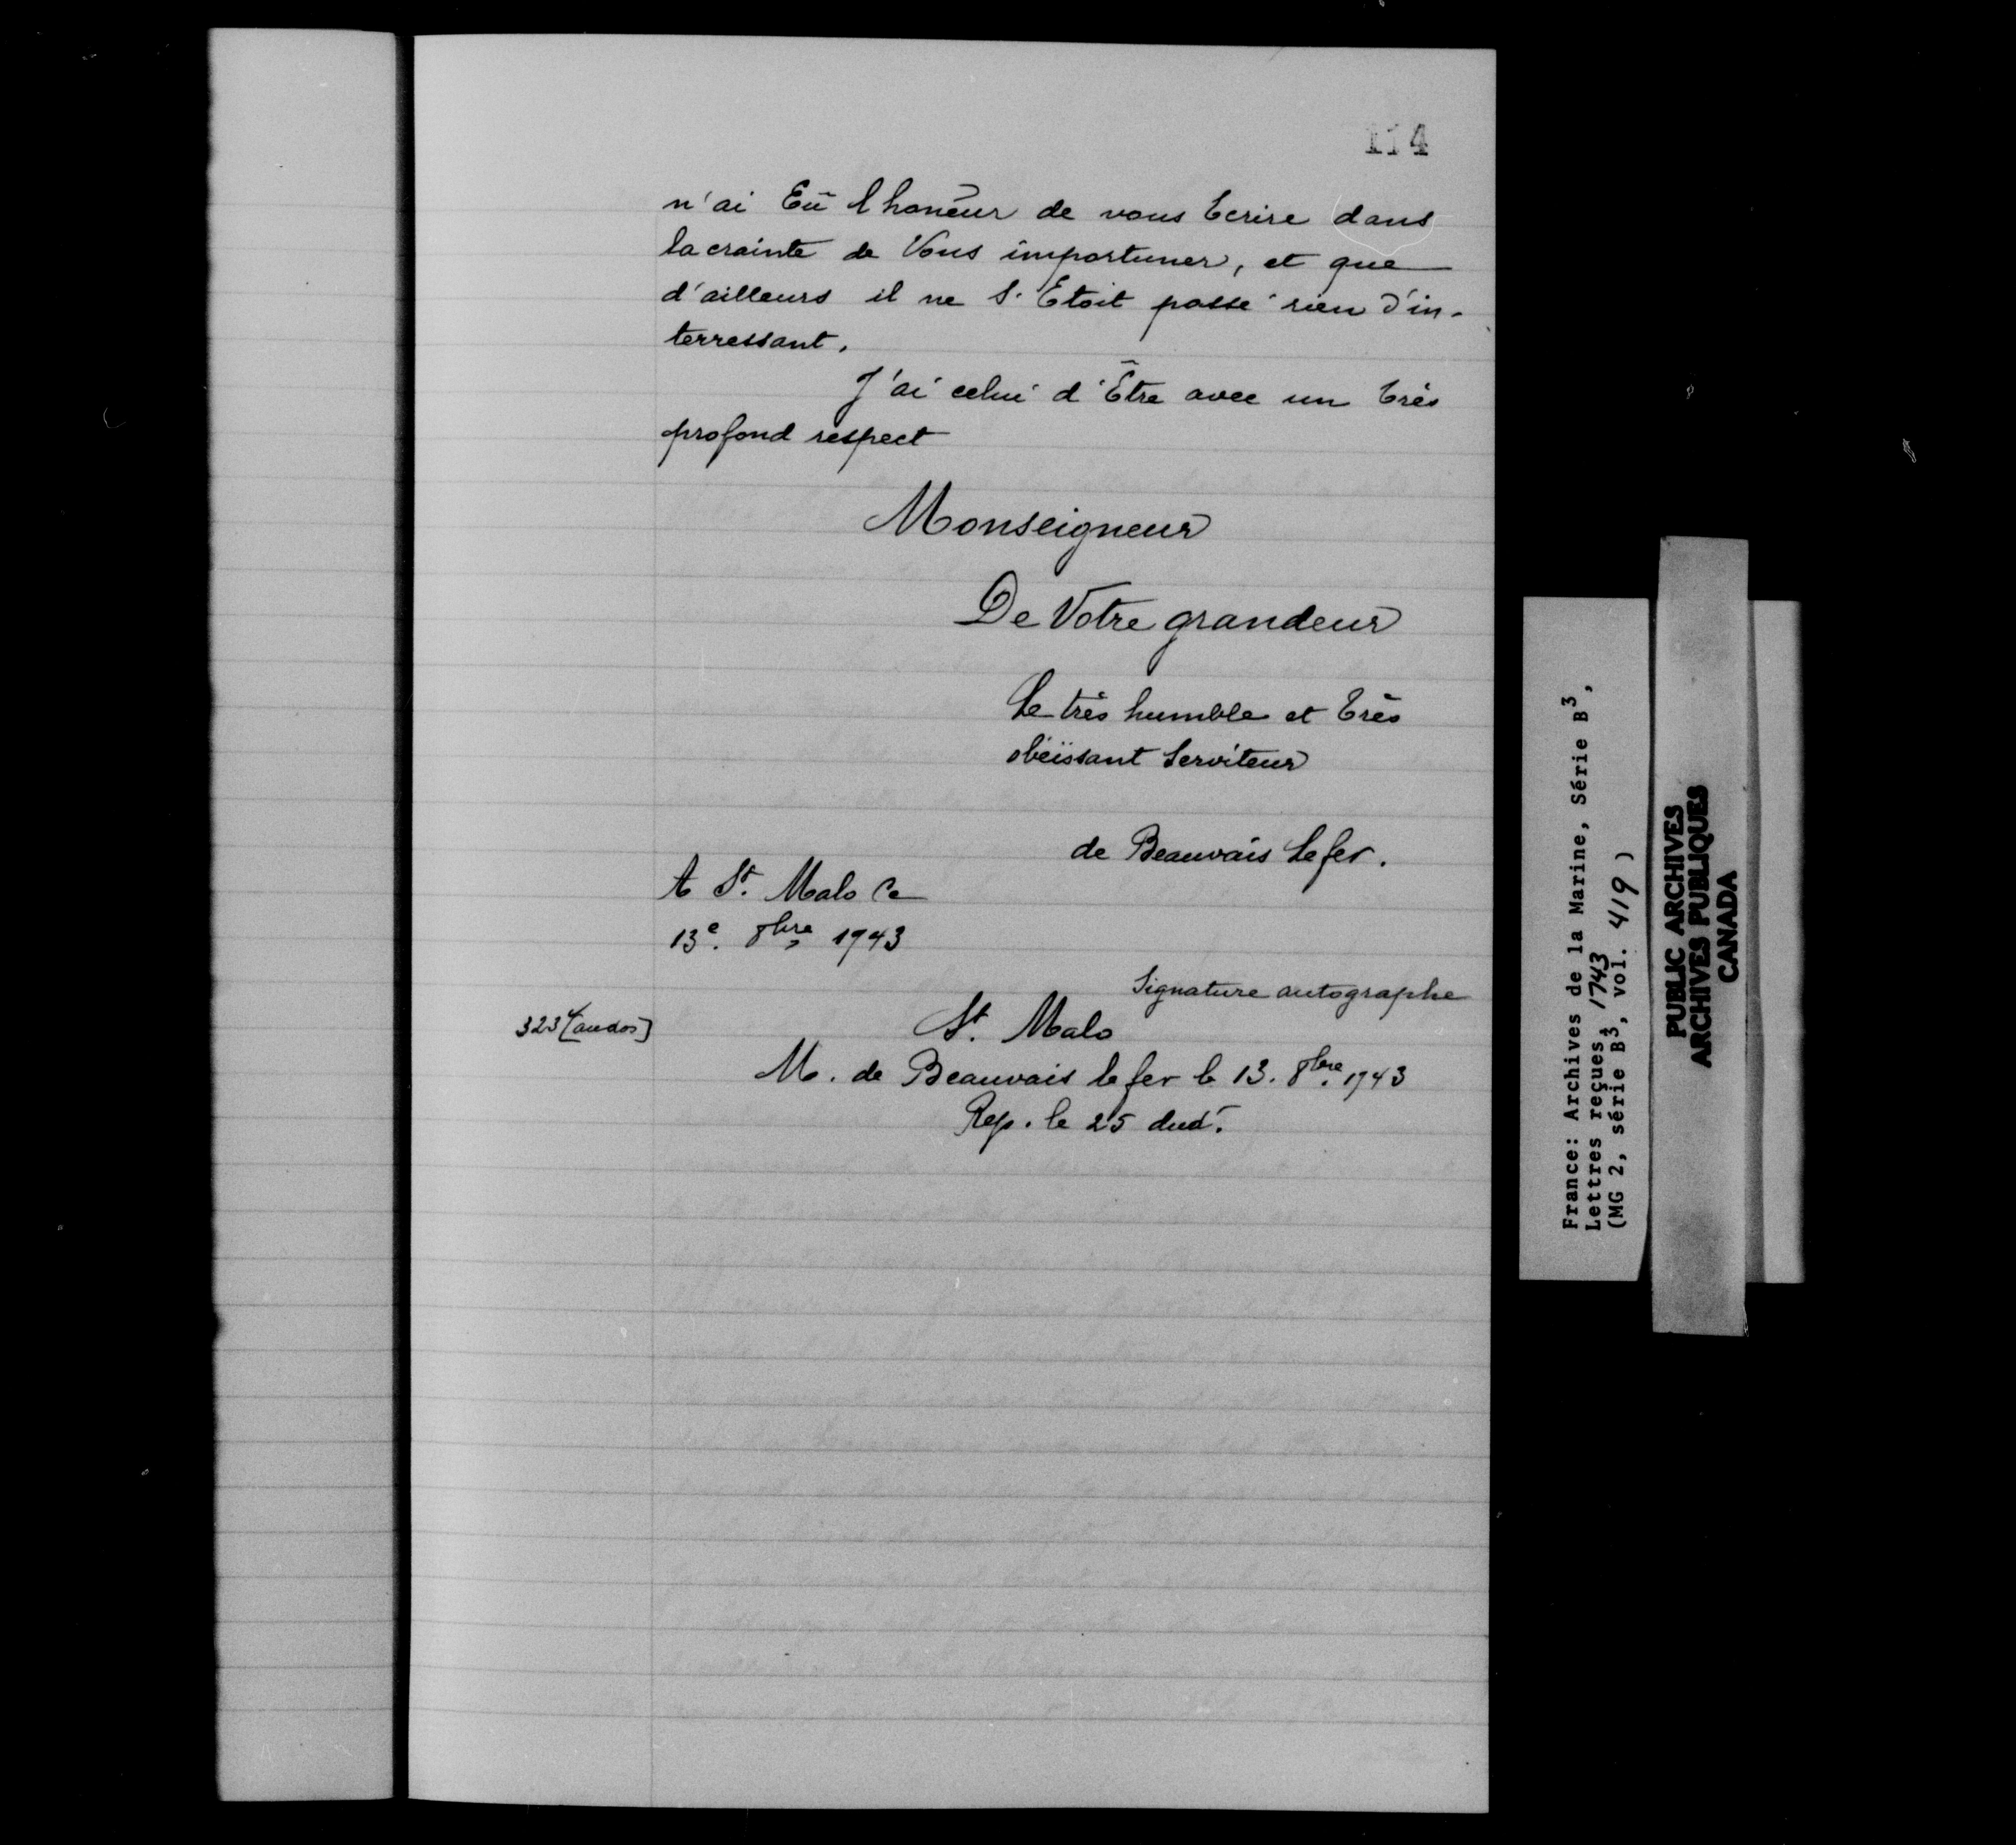 114
n'ai Eū l honēur de vous Ecrire dans
la crainte de Vous importuner, et que
d'ailleurs il ne S'Etoit passé rien d'in-
terressant.
J'ai celui d'Être avec un très
profond respect
Monseigneur
De Votre grandeur
Le très humble et très
obéïssant Serviteur
de Beauvais Lefer.
A St. Malo Ce
13e. 8bre 1743
Signature autographe
[au dos]
St. Malo
M. de Beauvais lefer le 13. 8bre. 1743
Rep. le 25 dud.
France: Archives de la Marine, Série B3,
Lettres reçues, 1743
(MG 2, série B3, vol. 419)
PUBLIC ARCHIVES
ARCHIVES PUBLIQUES
CANADA